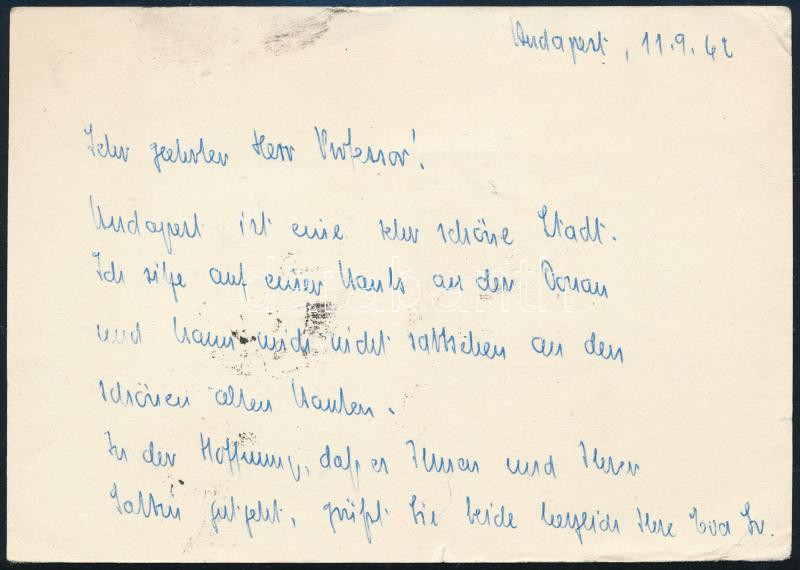 Budapest, 11.9.62
Sehr geehrter Herr Professor!
Budapest ist eine sehr schöne Stadt.
Ich sitze auf einer Bank an der Donau
und kann mich nicht sattsehen an den
schönen alten Bauten.
In der Hoffnung, daß es Ihnen und Ihrer
Gattin gutgeht, grüßt Sie beide herzlich Ihre Eva
darabanth